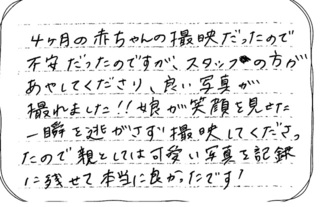 4ヶ月の赤ちゃんの撮映だったので
不安だったのですが、スタッフの方が
あやしてくださり、良い写真が
撮れました!!娘が笑顔を見せた
一瞬を逃がさず撮映してくださっ
たので親としては可愛い写真を記録
に残せて本当に良かったです!